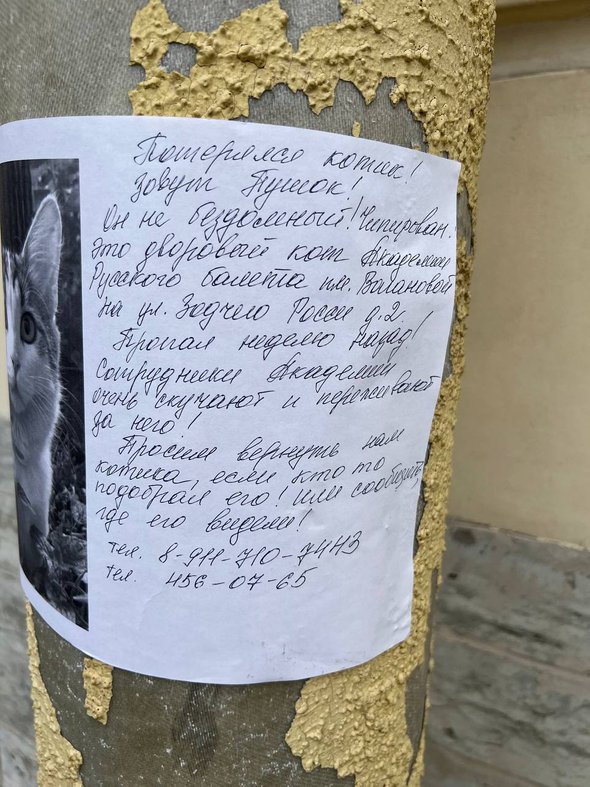 Потерялся котик!
Зовут Пушок!
Он не бездомный! Чипирован.
Это дворовый кот Академии
Русского балета им. Вагановой
на ул. Зодчего Росси д.2.
Пропал неделю назад!
Сотрудники Академии
очень скучают и переживают
за него!
Просим вернуть нам
котика, если кто то
подобрал его! Или сообщить,
где его видели!
тел. 8-911-710-7443
тел. 456-07-65